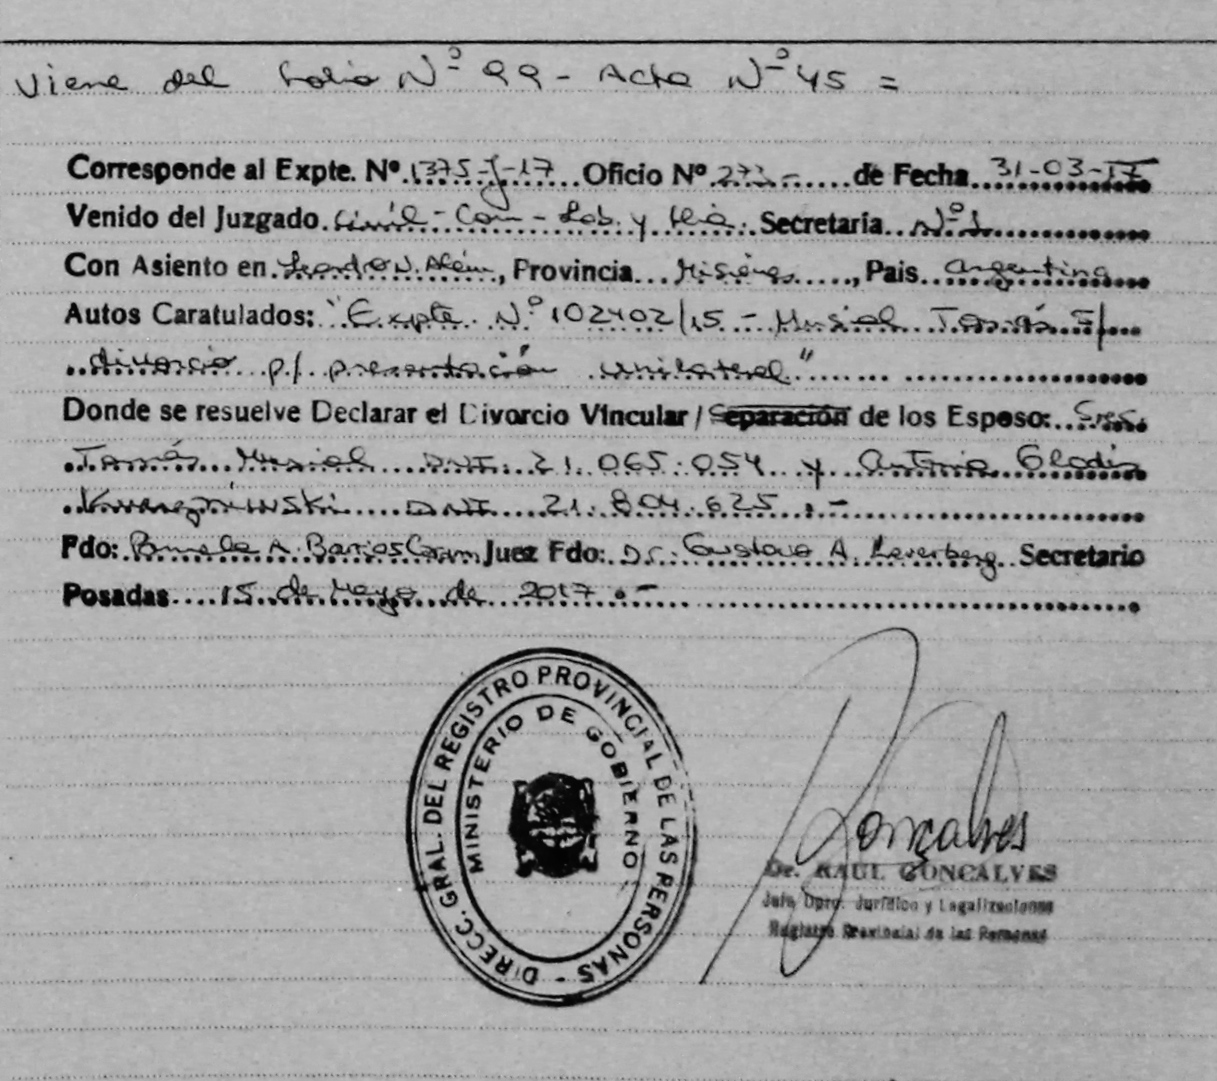 Viene del folio Nº 99 - Acta Nº 45 =
Corresponde al Expte. Nº 1375-J-17 Oficio Nº 273 - de Fecha 31-03-17
Venido del Juzgado Civil - Com - Lab. y Flia. Secretaría Nº 1
Con Asiento en Leandro N. Alem, Provincia Misiones, Pais Argentina
Autos Caratulados: "Expte. Nº 102402/15 - Musial Tomás S/
divorcio p/ presentación unilateral"
Donde se resuelve Declarar el Divorcio Vincular / Separación de los Esposo: Sres.
Tomás Musial DNI: 21.065.054 y Antonia Gladis
DNI 21.804.625.-
Fdo: A. Barrios Juez Fdo: Dr. Gustavo A. Secretario
Posadas 15 de Mayo de 2017.-
DIRECC. GRAL. DEL REGISTRO PROVINCIAL DE LAS PERSONAS -
MINISTERIO DE GOBIERNO
Goncalves
Dr. RAUL GONCALVES
Jefe Dpto. Jurídico y Legalizaciones
Registro Provincial de las Personas